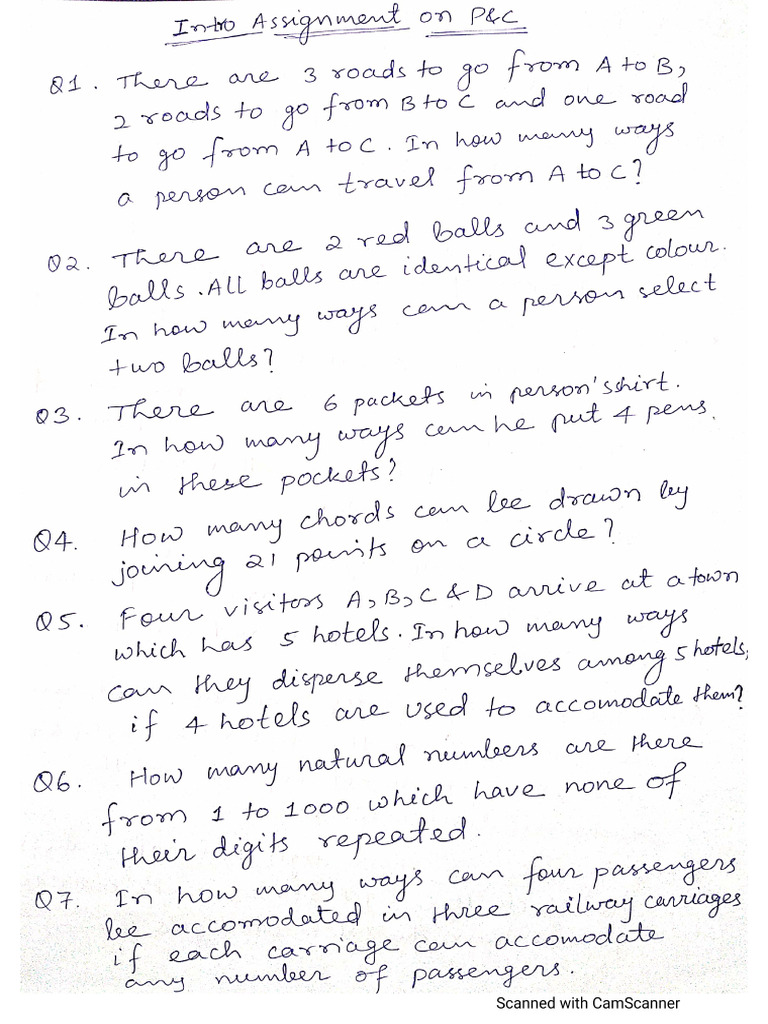 Intro Assignment on P&C
Q1. There are 3 roads to go from A to B,
2 roads to go from B to C and one road
to go from A to C. In how many ways
a person can travel from A to C?
Q2. There are 2 red balls and 3 green
balls. All balls are identical except colour.
In how many ways can a person select
two balls?
Q3. There are 6 packets in person's shirt.
In how many ways can he put 4 pens
in these pockets?
Q4. How many chords can be drawn by
joining 21 points on a circle?
Q5. Four visitors A, B, C & D arrive at a town
which has 5 hotels. In how many ways
can they disperse themselves among 5 hotels,
if 4 hotels are used to accomodate them?
Q6. How many natural numbers are there
from 1 to 1000 which have none of
their digits repeated.
Q7. In how many ways can four passengers
be accomodated in three railway carriages
if each carriage can accomodate
any number of passengers.
Scanned with CamScanner